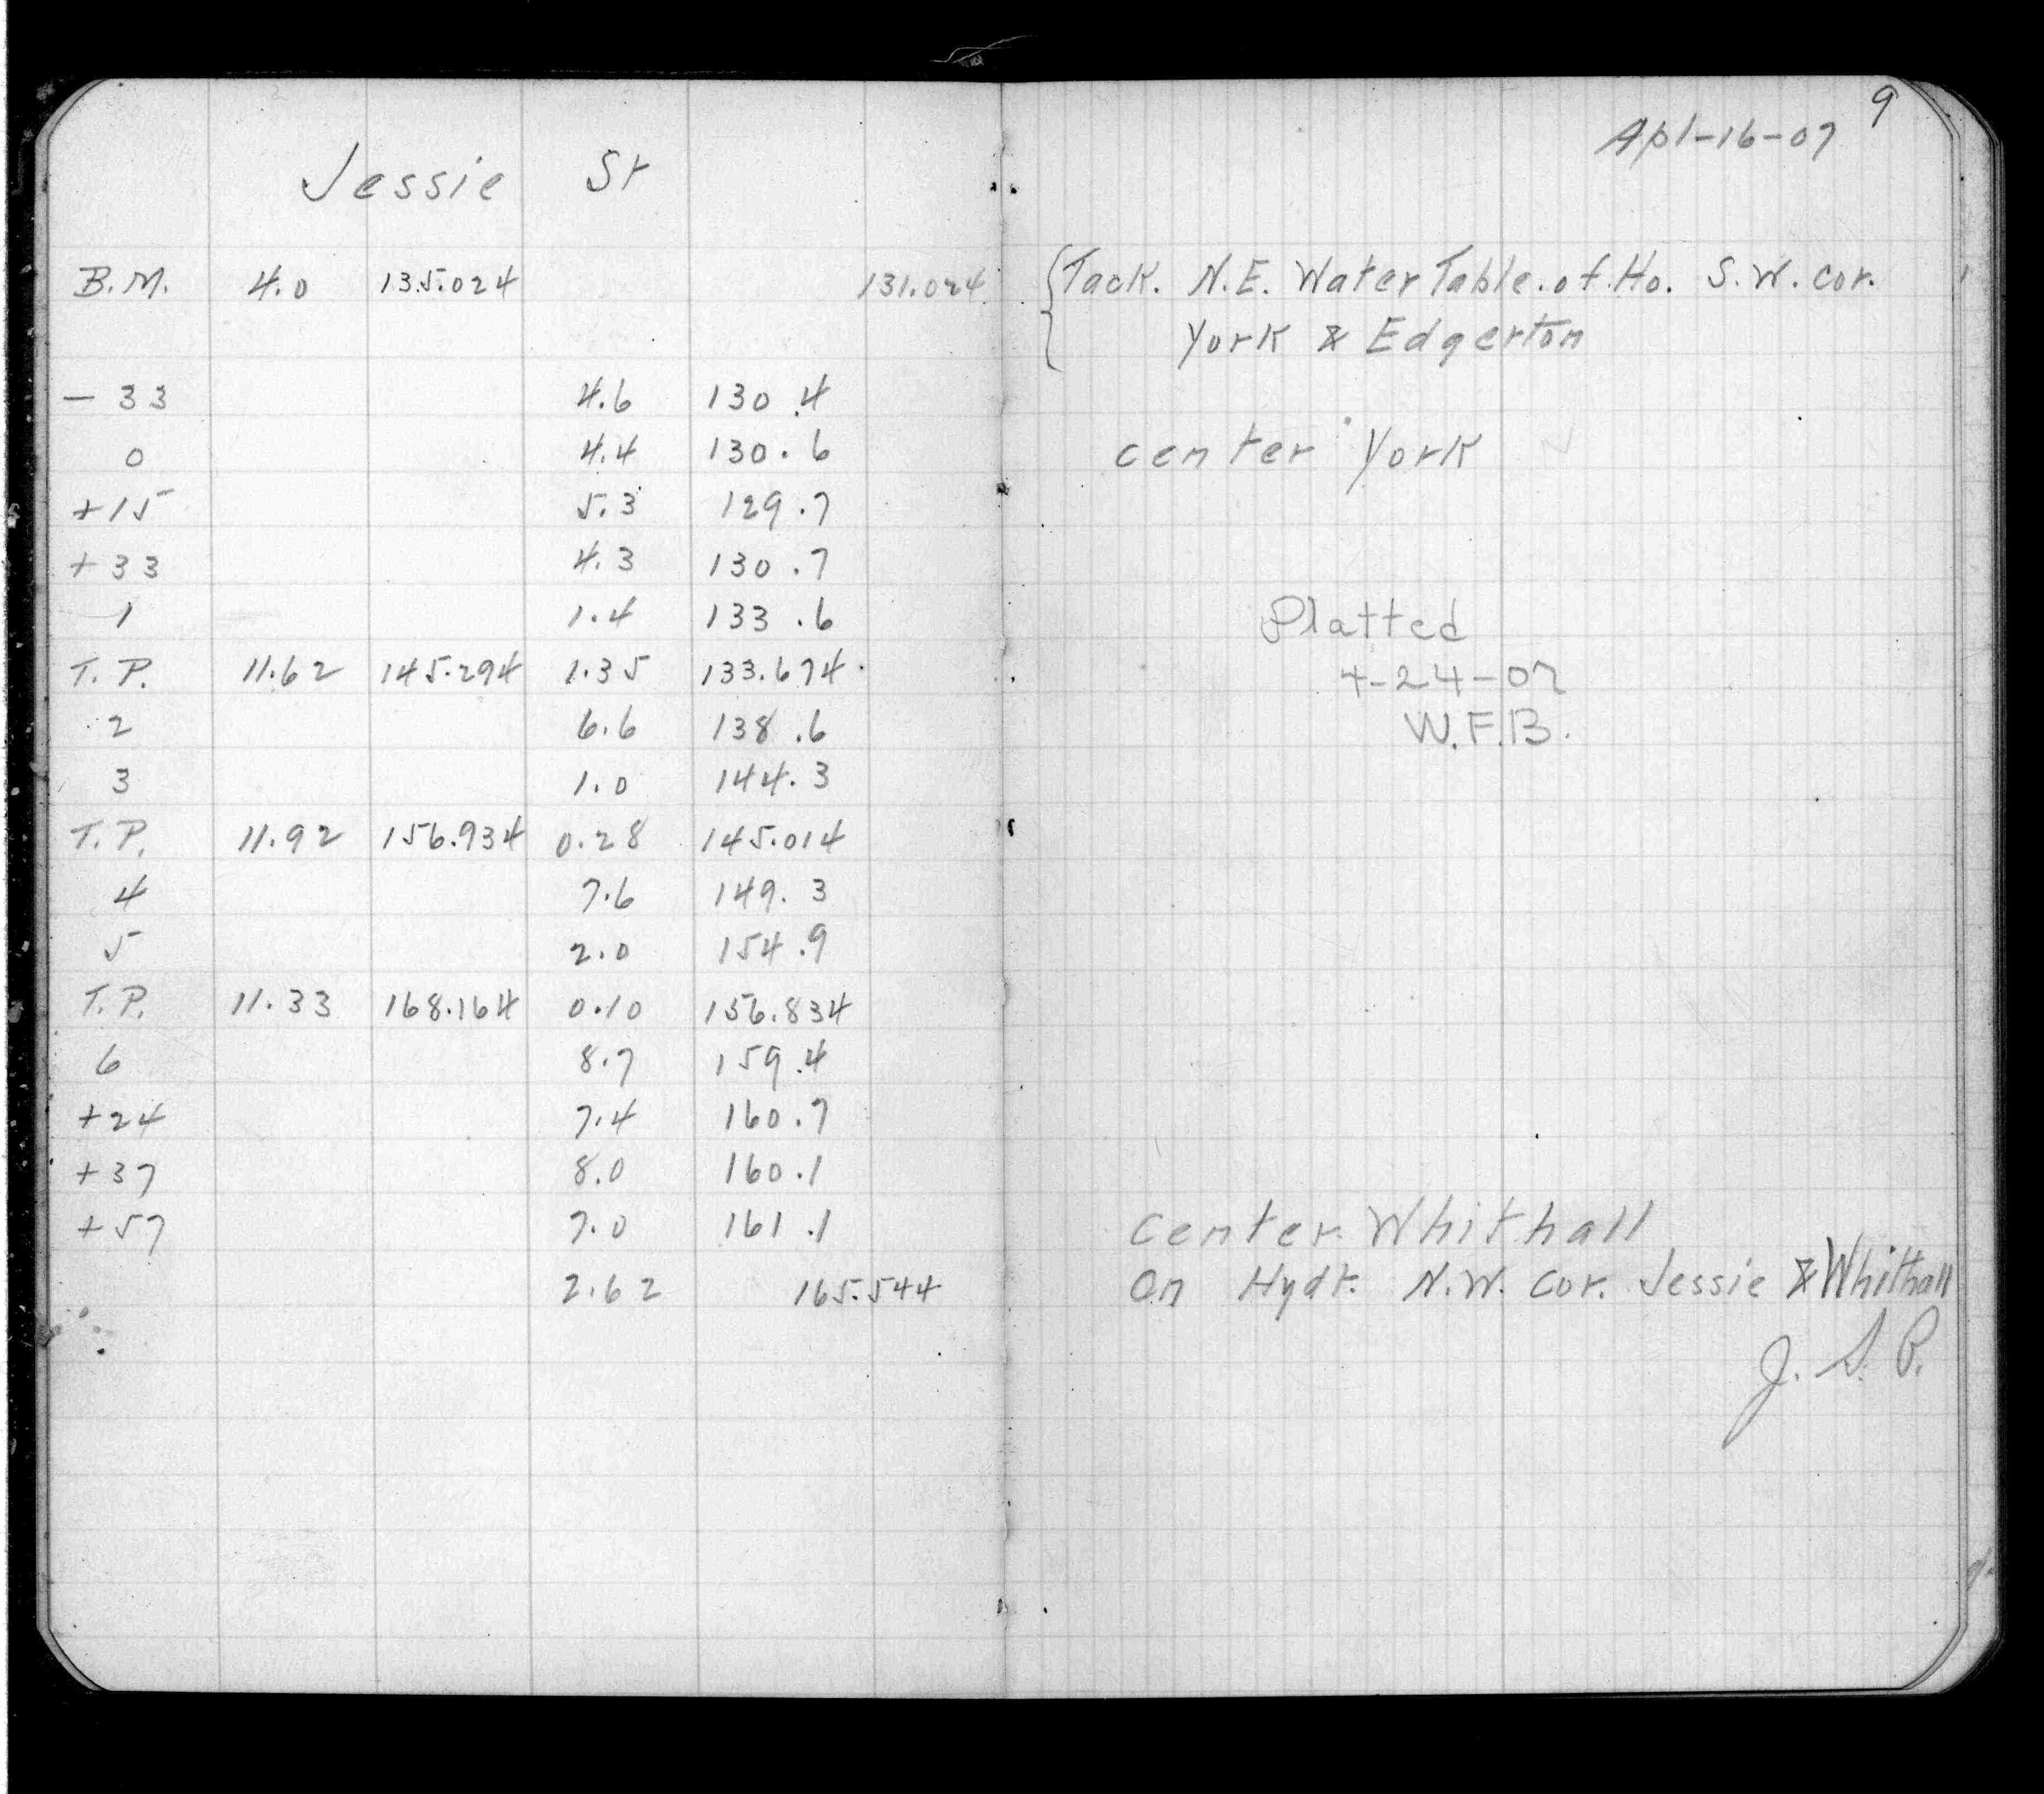 Jessie St
B.M. 4.0 135.024 131.024
- 33 4.6 130.4
0 4.4 130.6
+15 5.3 129.7
+33 4.3 130.7
1 1.4 133.6
T.P. 11.62 145.294 1.35 133.674
2 6.6 138.6
3 1.0 144.3
T.P. 11.92 156.934 0.28 145.014
4 7.6 149.3
5 2.0 154.9
T.P. 11.33 168.164 0.10 156.834
6 8.7 159.4
+24 7.4 160.7
+37 8.0 160.1
+57 7.0 161.1
2.62 165.544
9
Apl-16-07
Tack. N.E. Water Table. of. Ho. S.W. cor.
York & Edgerton
center York
Platted
4-24-07
W.F.B.
Center Whithall
On Hydt. N.W. Cor. Jessie & Whithall
J. S. P.